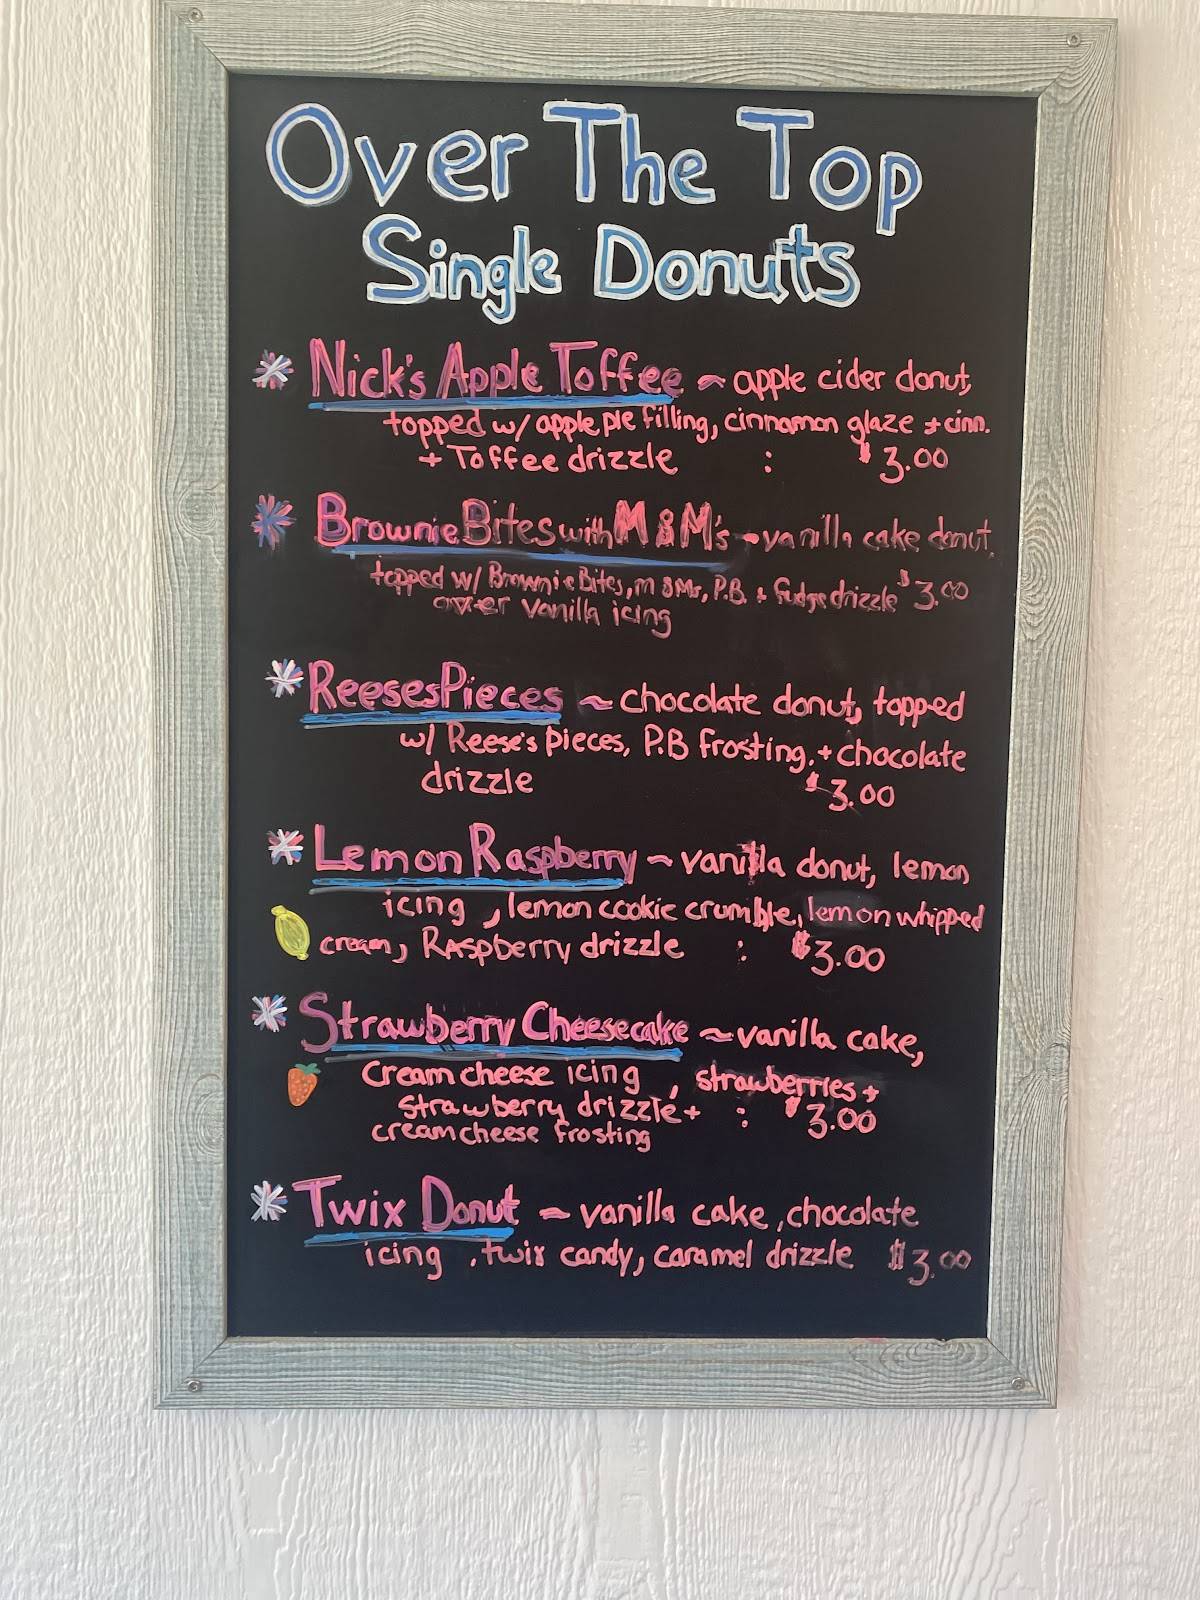 Over The Top
Single Donuts
* Nick's Apple Toffee ~ apple cider donut,
topped w/ apple pie filling, cinnamon glaze + cinn.
+ Toffee drizzle : $3.00
* Brownie Bites with M&M's ~ vanilla cake donut,
topped w/ Brownie Bites, m&ms, P.B. + fudge drizzle $3.00
over vanilla icing
* Reeses Pieces ~ chocolate donut, topped
w/ Reese's pieces, P.B frosting, + chocolate
drizzle $3.00
* Lemon Raspberry ~ vanilla donut, lemon
icing , lemon cookie crumble, lemon whipped
cream, Raspberry drizzle : $3.00
* Strawberry Cheesecake ~ vanilla cake,
cream cheese icing , strawberries +
strawberry drizzle + : $3.00
creamcheese frosting
* Twix Donut ~ vanilla cake, chocolate
icing , twix candy, caramel drizzle $3.00